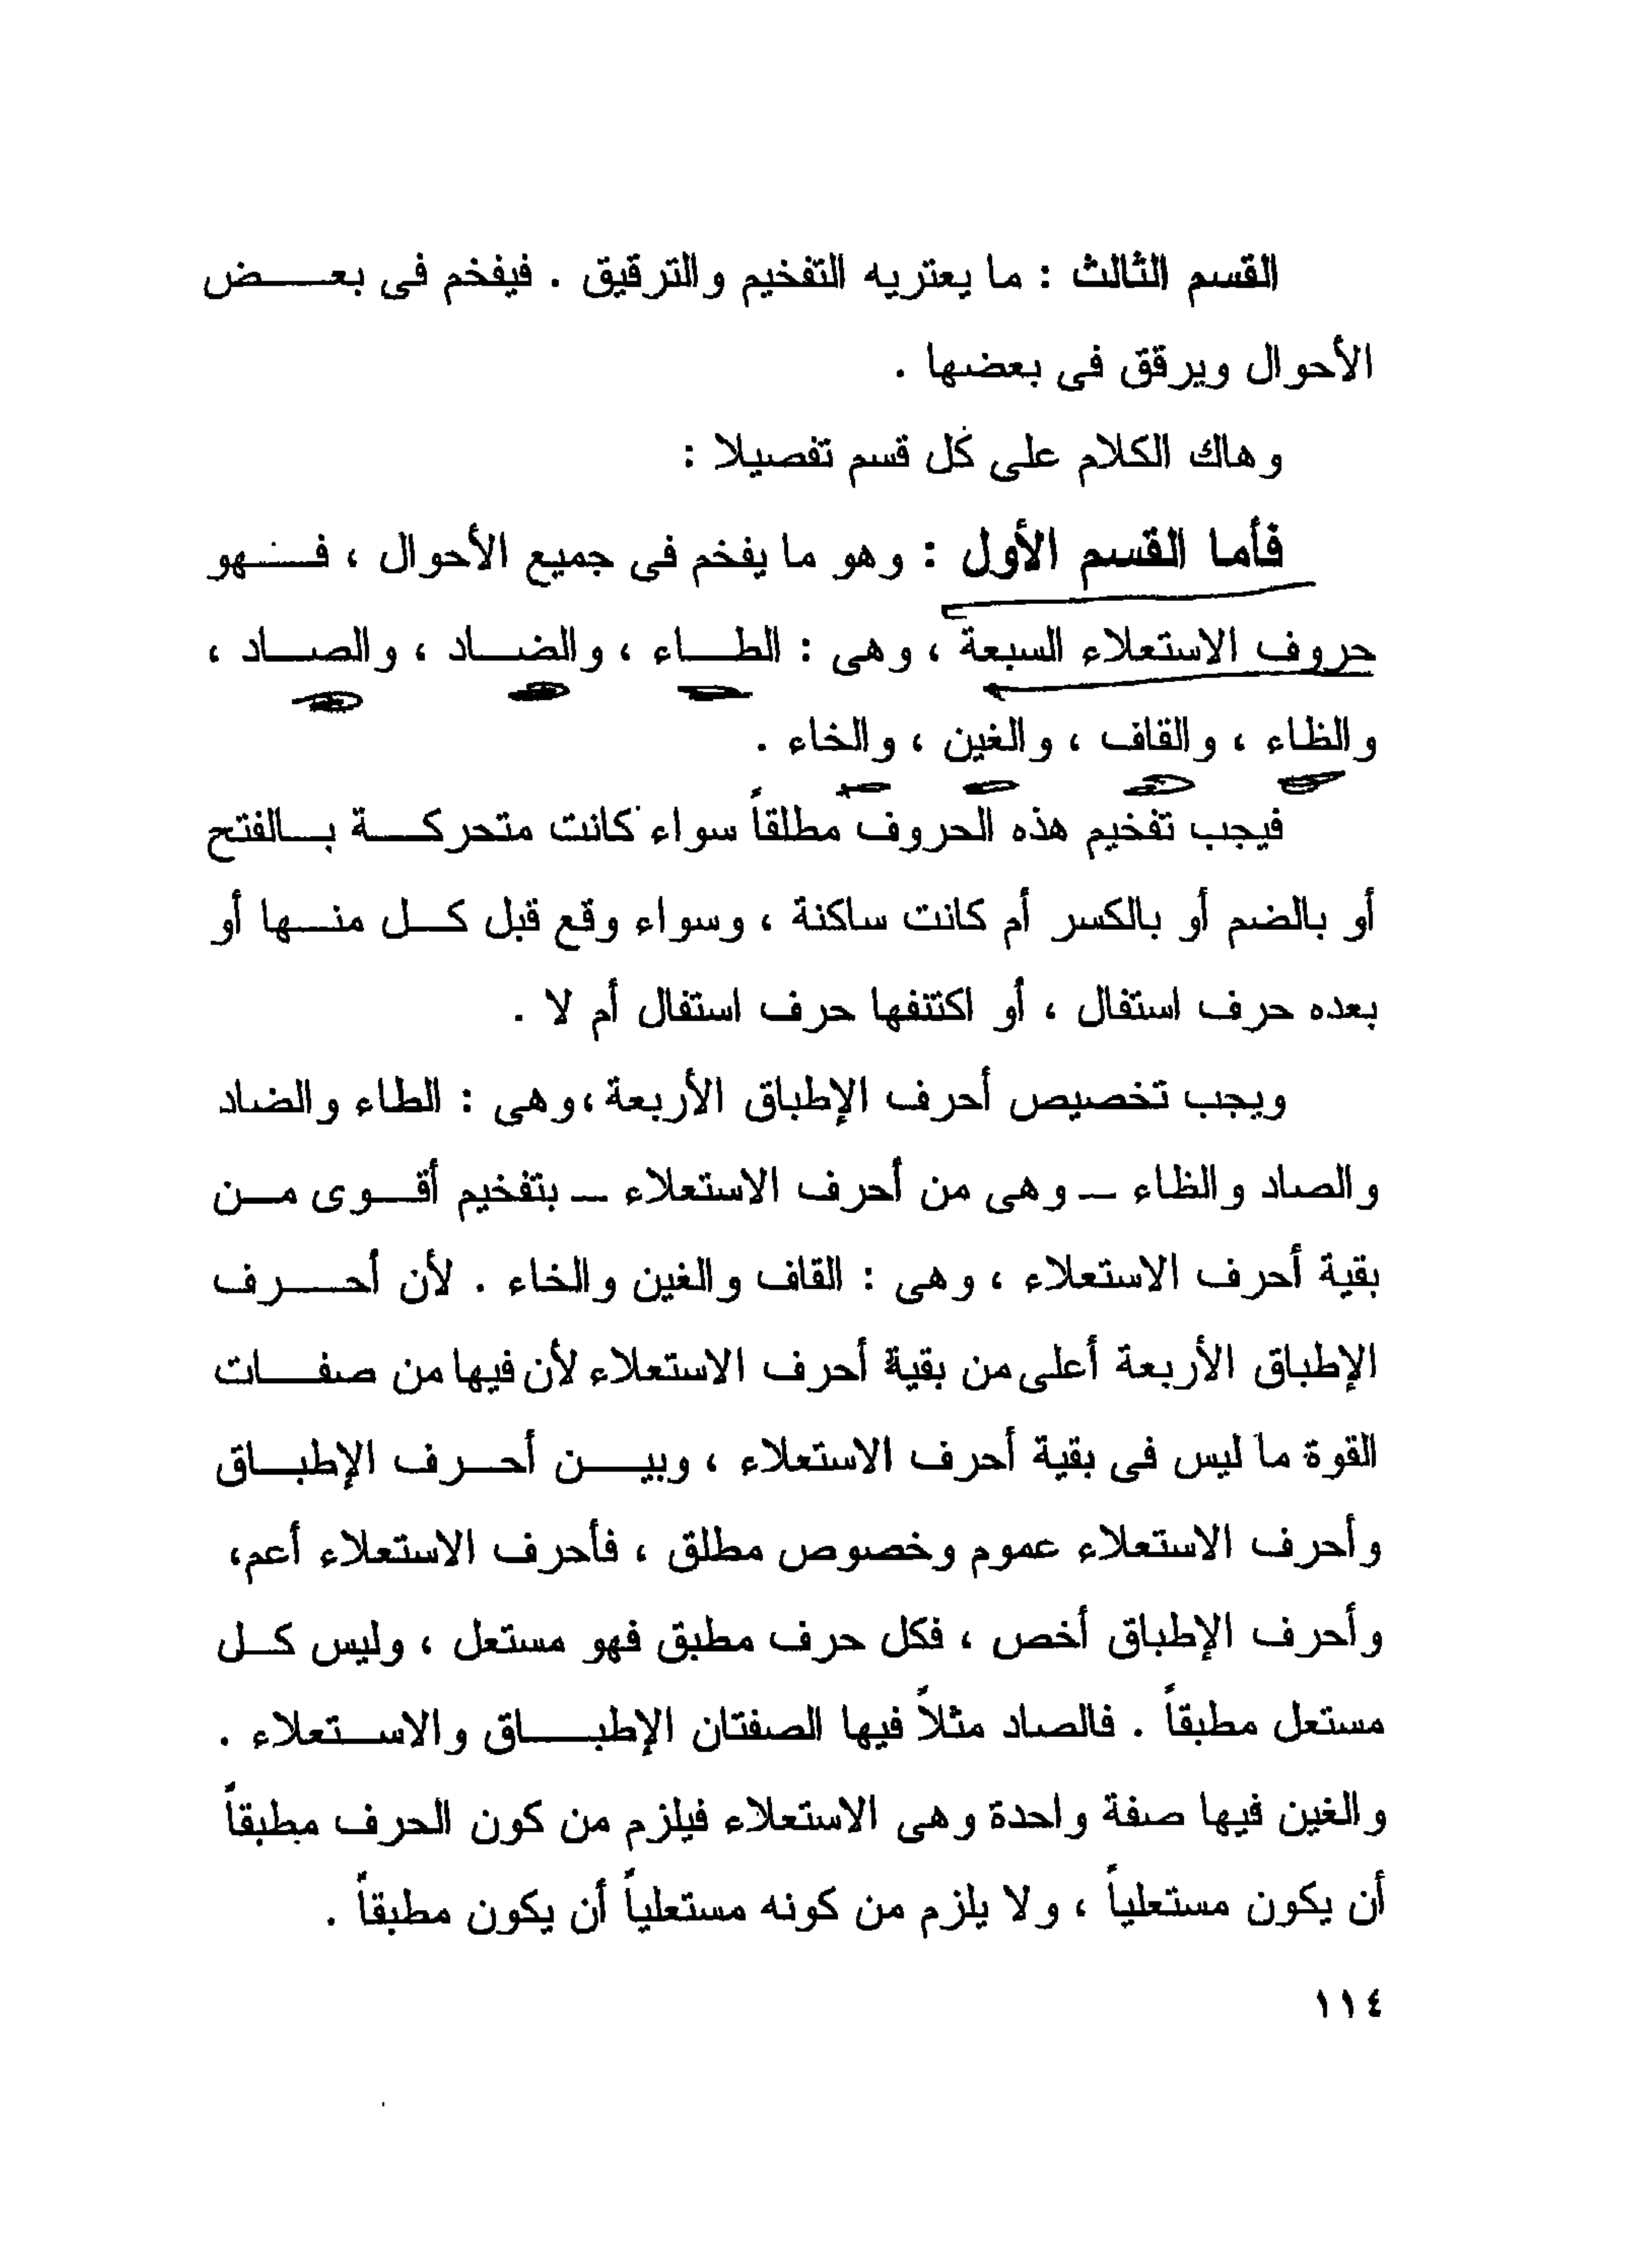 القسم الثالث : ما يعتريه التفخيم والترقيق . فيفخم فى بعض
الأحوال ويرقق فى بعضها .
وهاك الكلام على كل قسم تفصيلا :
فأما القسم الأول : وهو ما يفخم فى جميع الأحوال ، فهو
حروف الاستعلاء السبعة ، وهى : الطاء ، والضاد ، والصاد ،
والظاء ، والقاف ، والغين ، والخاء .
فيجب تفخيم هذه الحروف مطلقاً سواء كانت متحركة بالفتح
أو بالضم أو بالكسر أم كانت ساكنة ، وسواء وقع قبل كل منها أو
بعده حرف استفال ، أو اكتنفها حرف استفال أم لا .
ويجب تخصيص أحرف الإطباق الأربعة ،وهى : الطاء والضاد
والصاد والظاء – وهى من أحرف الاستعلاء – بتفخيم أقوى من
بقية أحرف الاستعلاء ، وهى : القاف والغين والخاء . لأن أحرف
الإطباق الأربعة أعلى من بقية أحرف الاستعلاء لأن فيها من صفات
القوة ما ليس فى بقية أحرف الاستعلاء ، وبين أحرف الإطباق
وأحرف الاستعلاء عموم وخصوص مطلق ، فأحرف الاستعلاء أعم،
وأحرف الإطباق أخص ، فكل حرف مطبق فهو مستعل ، وليس كل
مستعل مطبقاً . فالصاد مثلاً فيها الصفتان الإطباق والاستعلاء .
والغين فيها صفة واحدة وهى الاستعلاء فيلزم من كون الحرف مطبقاً
أن يكون مستعلياً ، ولا يلزم من كونه مستعلياً أن يكون مطبقاً .
١١٤